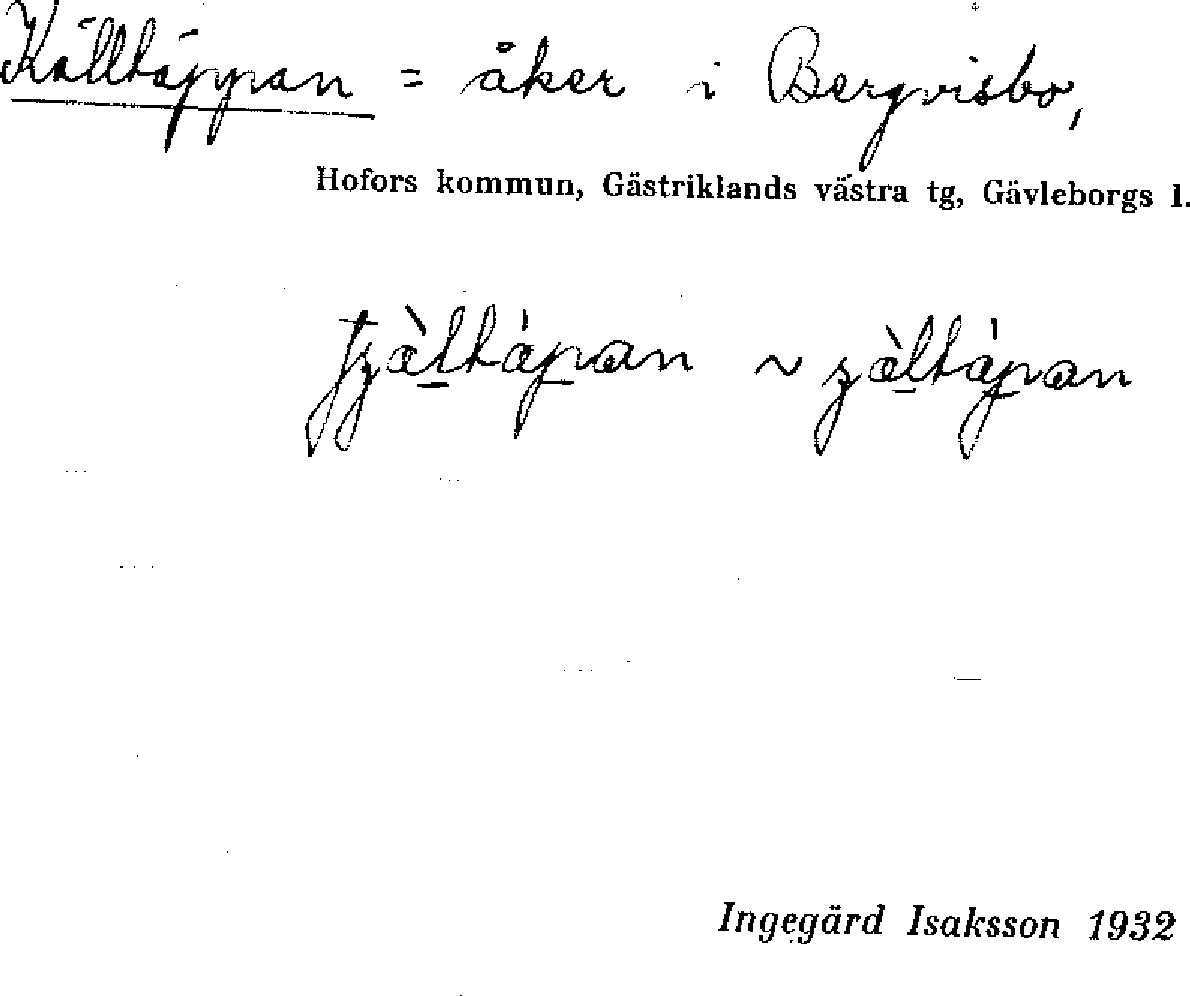 Källtäppan = åker i Bergvisbo,
Hofors kommun, Gästriklands västra tg, Gävleborgs l.
~
Ingegärd Isaksson 1932